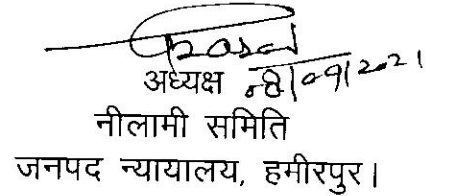 अध्यक्ष 08/09/2021
नीलामी समिति
जनपद न्यायालय, हमीरपुर।